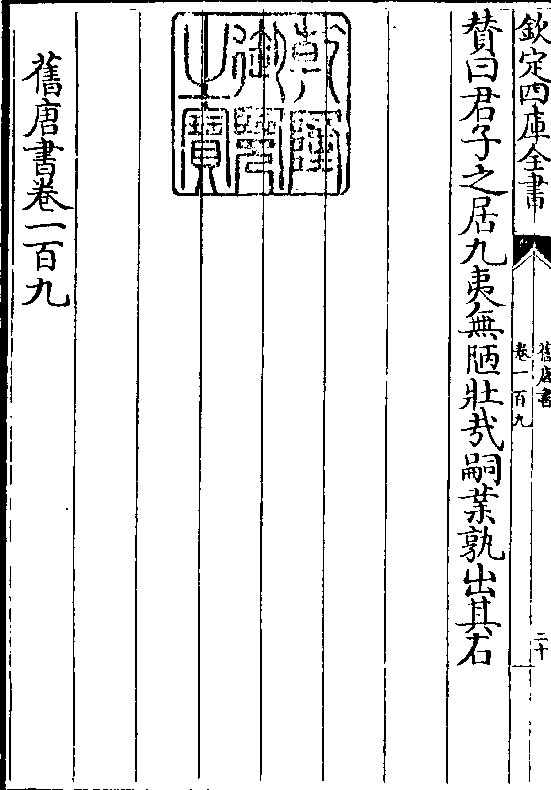 欽定四庫全書
舊唐書
卷一百九
二十
贊曰君子之居九夷無陋壯哉嗣業孰出其右
乾隆
御覽
之寶
舊唐書卷一百九